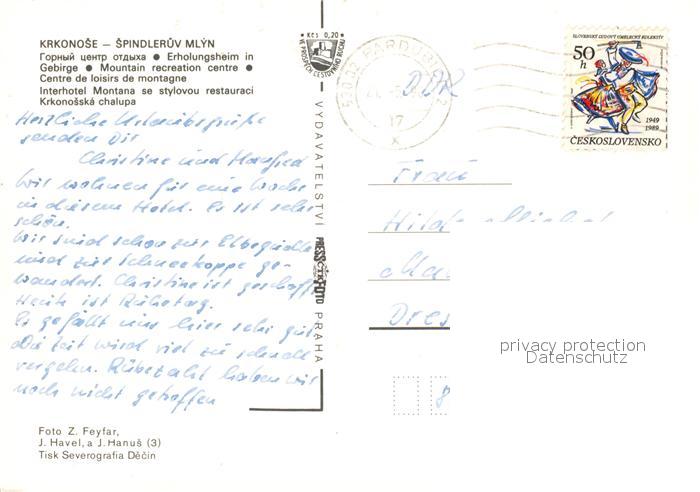 KRKONOŠE – ŠPINDLERŮV MLÝN
Горный центр отдыха ● Erholungsheim in
Gebirge ● Mountain recreation centre ●
Centre de loisirs de montagne
Interhotel Montana se stylovou restaurací
Krkonošská chalupa
Herzliche Urlaubsgrüße
senden Dir
Christine und Manfred
Wir wohnen für eine Woche
in diesem Hotel. Es ist sehr
schön.
Wir sind schon zur Elbequelle
und zur Schneekoppe ge-
wandert. Christine ist geschafft.
Heute ist Ruhetag.
Es gefällt uns hier sehr gut.
Die Zeit wird viel zu schnell
vergehen. Rübezahl haben wir
noch nicht getroffen
Foto Z. Feyfar,
J. Havel, a J. Hanuš (3)
Tisk Severografia Děčín
Kčs 0,20
VE PROSPĚCH CESTOVNÍHO RUCHU
VYDAVATELSTVÍ
PRESSFOTO
ČTK
PRAHA
PARDUBICE 2
17
X
DDR
SLOVENSKÉ ĽUDOVÝ UMELECKÝ KOLEKTÍV
50
h
1949
1989
ČESKOSLOVENSKO
Frau
Dres
8
privacy protection
Datenschutz